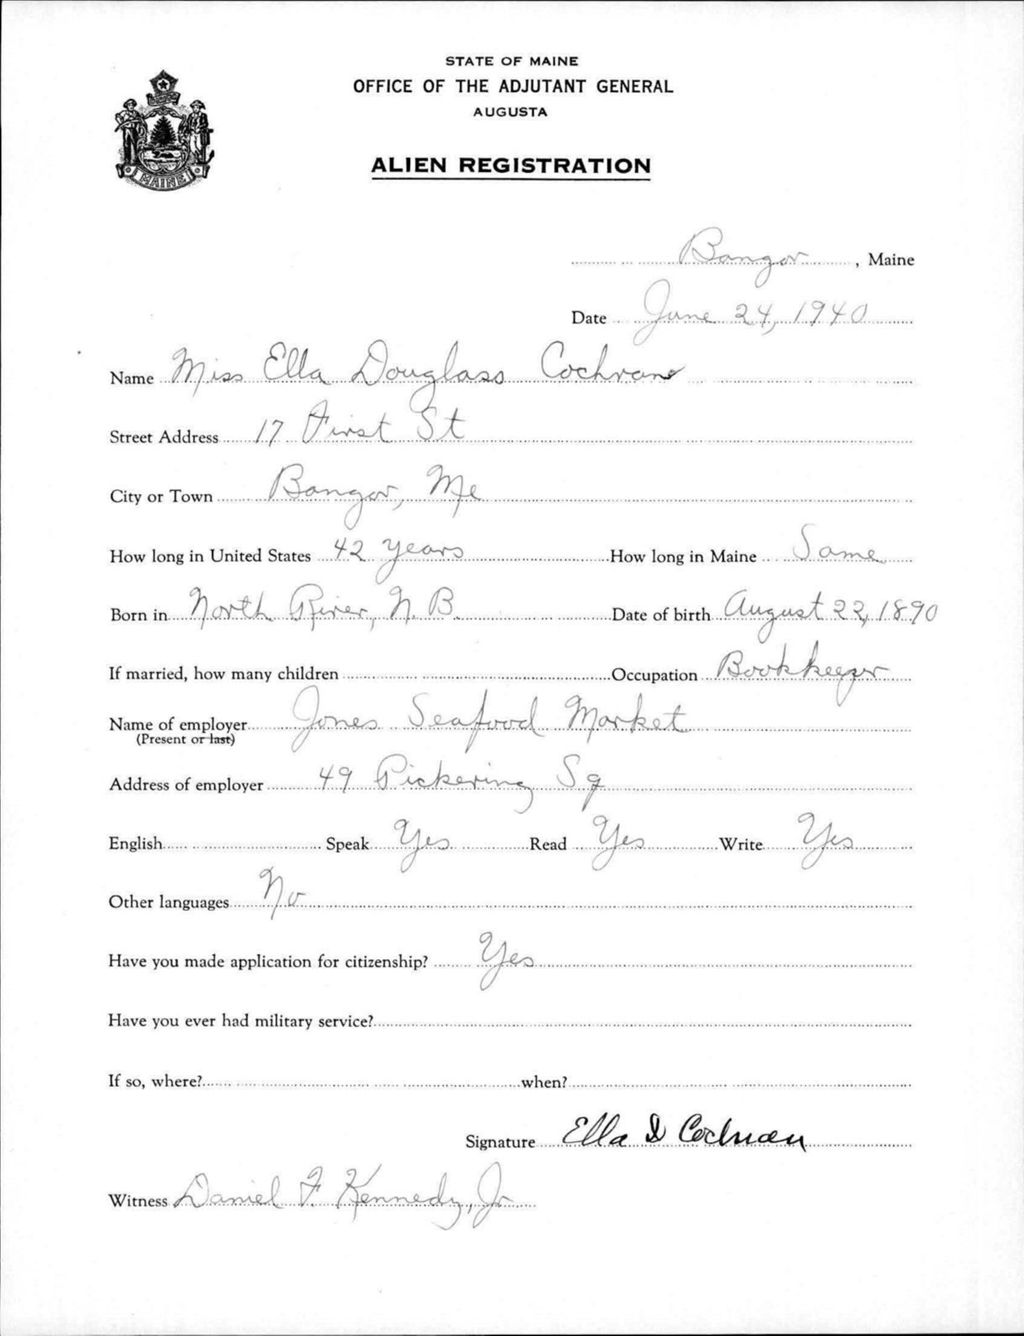 STATE OF MAINE
OFFICE OF THE ADJUTANT GENERAL
AUGUSTA
ALIEN REGISTRATION
MAINE
Bangor, Maine
Date June 24, 1940
Name Miss Ella Douglass Cochran
Street Address 17 First St
City or Town Bangor, Me
How long in United States 42 years How long in Maine Same
Born in North River, N. B. Date of birth August 22, 1890
If married, how many children Occupation Bookkeeper
Name of employer Jones Seafood Market
(Present or last)
Address of employer 49 Pickering Sq
English Speak Yes Read Yes Write Yes
Other languages No
Have you made application for citizenship? Yes
Have you ever had military service?
If so, where? when?
Signature Ella D Cochran
Witness Daniel F. Kennedy, Jr